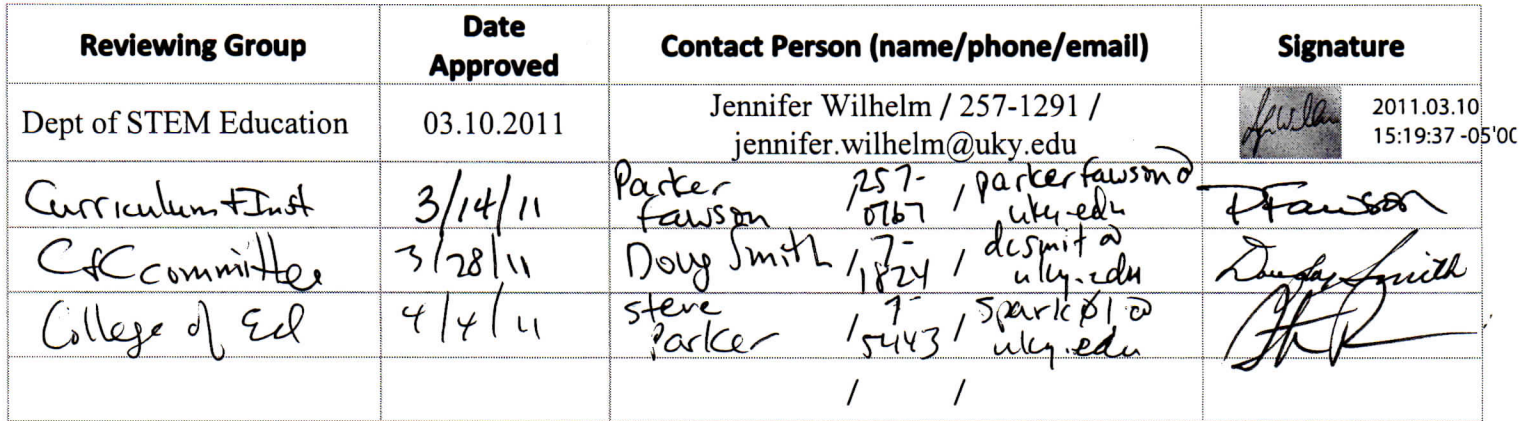 Reviewing Group
Date
Approved
Contact Person (name/phone/email)
Signature
Dept of STEM Education
03.10.2011
Jennifer Wilhelm / 257-1291 /
jennifer.wilhelm@uky.edu
2011.03.10
15:19:37 -05'00
Curriculum + Inst
3/14/11
Parker
Fawson
/ 257-
0767
/ parkerfawson@
uky.edu
PFawson
C&C committee
3/28/11
Doug Smith
/ 7-
1824
/ dcsmit@
uky.edu
Douglas Smith
College of Ed
4/4/11
Steve
Parker
/ 7-
5443
/ spark01@
uky.edu
/ /